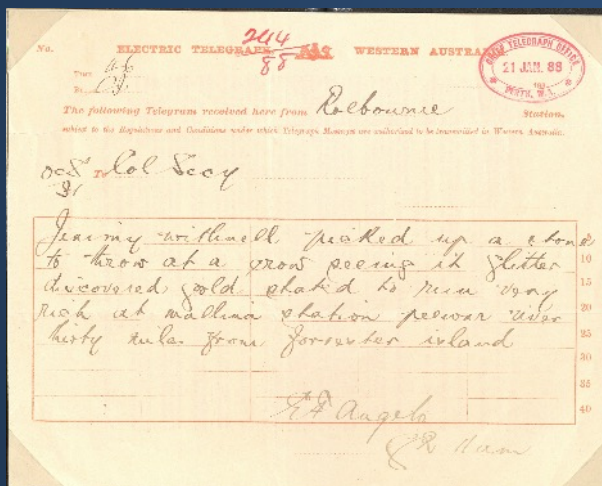 244
88
No. ELECTRIC TELEGRAPH WESTERN AUSTRA
CHIEF TELEGRAPH OFFICE
21 JAN. 88
PERTH, W.A.
The following Telegram received here from Roebourne Station.
subject to the Regulations and Conditions under which Telegraph Messages are authorized to be transmitted in Western Australia.
To Col Secy
Jimmy withnell picked up a stone
to throw at a crow seeing it glitter
discovered gold stated to run very
rich at mallina station peewar river
thirty miles from forrester island
5
10
15
20
25
30
35
40
E F Angelo
G R Ham